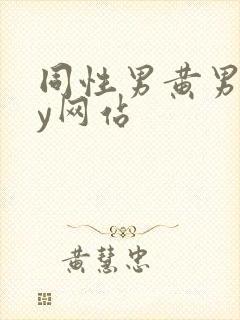 同性男黄男
y网佔
黄慧忠